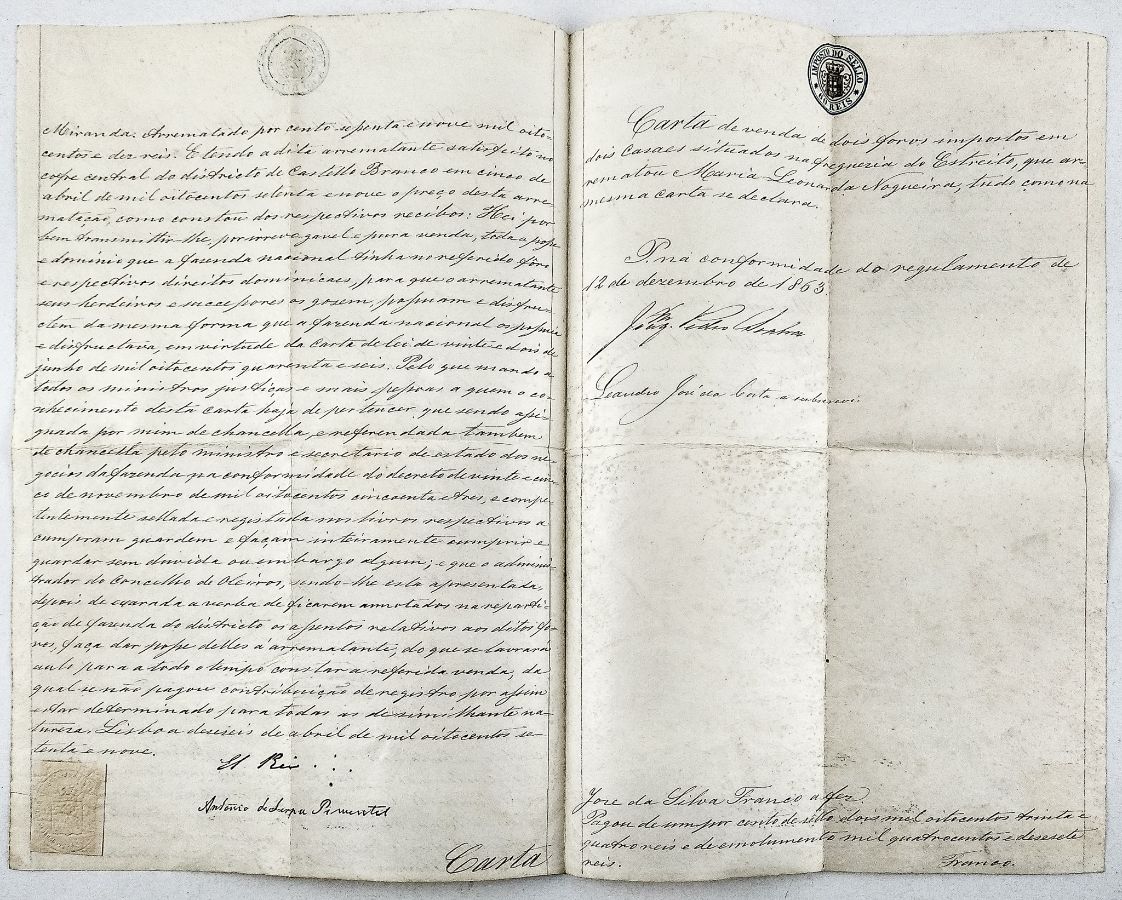 Miranda. Arrematado por cento setenta e nove mil oito-
centos e dez reis. E tendo a dita arrematante satisfeito no
cofre central do districto de Castello Branco em cinco de
abril de mil oitocentos setenta e nove o preço desta arre-
matação, como constou dos respectivos recibos: Hei por
bem transmittir-lhe, por irrevogavel e pura venda, toda a posse
e dominio que a fazenda nacional tinha no referido fôro
e respectivos direitos dominicaes, para que o arrematante
seus herdeiros e successores os gosem, possuam e disfru-
ctem da mesma forma que a fazenda nacional os possuia
e disfructava, em virtude da Carta de lei de vinte e dois de
junho de mil oitocentos quarenta e seis. Pelo que mando a
todos os ministros justiças e mais pessoas a quem o co-
nhecimento desta carta haja de pertencer, que sendo assi-
gnada por mim de chancella, e referendada tambem
de chancella pelo ministro e secretario de estado dos ne-
gocios da fazenda na conformidade do decreto de vinte e cin-
co de novembro de mil oitocentos cincoenta e tres, e compe-
tentemente sellada e registada nos livros respectivos a
cumpram guardem e façam inteiramente cumprir e
guardar sem duvida ou embargo algum; e que o adminis-
trador do Concelho de Oleiros, sendo-lhe esta apresentada,
depois de exarada a verba de ficarem annotados na reparti-
ção de fazenda do districto os assentos relativos aos ditos fo-
ros, faça dar posse delles á arrematante, do que se lavrará
auto para a todo o tempo constar a referida venda, da
qual se não pagou contribuição de registro por assim
estar determinado para todas as de similhante na-
tureza. Lisboa deseseis de abril de mil oitocentos se-
tenta e nove.
El Rei
Antonio de Serpa Pimentel
Carta
IMPOSTO DO SELLO
REIS
Carta de venda de dois foros impostos em
dois Casaes situados na freguezia do Estreito, que ar-
rematou Maria Leonarda Nogueira, tudo como na
mesma carta se declara.
P. na conformidade do regulamento de
12 de dezembro de 1863.
Pedro
Leandro José da Costa a subscrevi
Jose da Silva Franco a fez.
Pagou de um por cento de sello dois mil oitocentos trinta e
quatro reis e de emolumento mil quatrocentos e desesete
reis.
Franco.